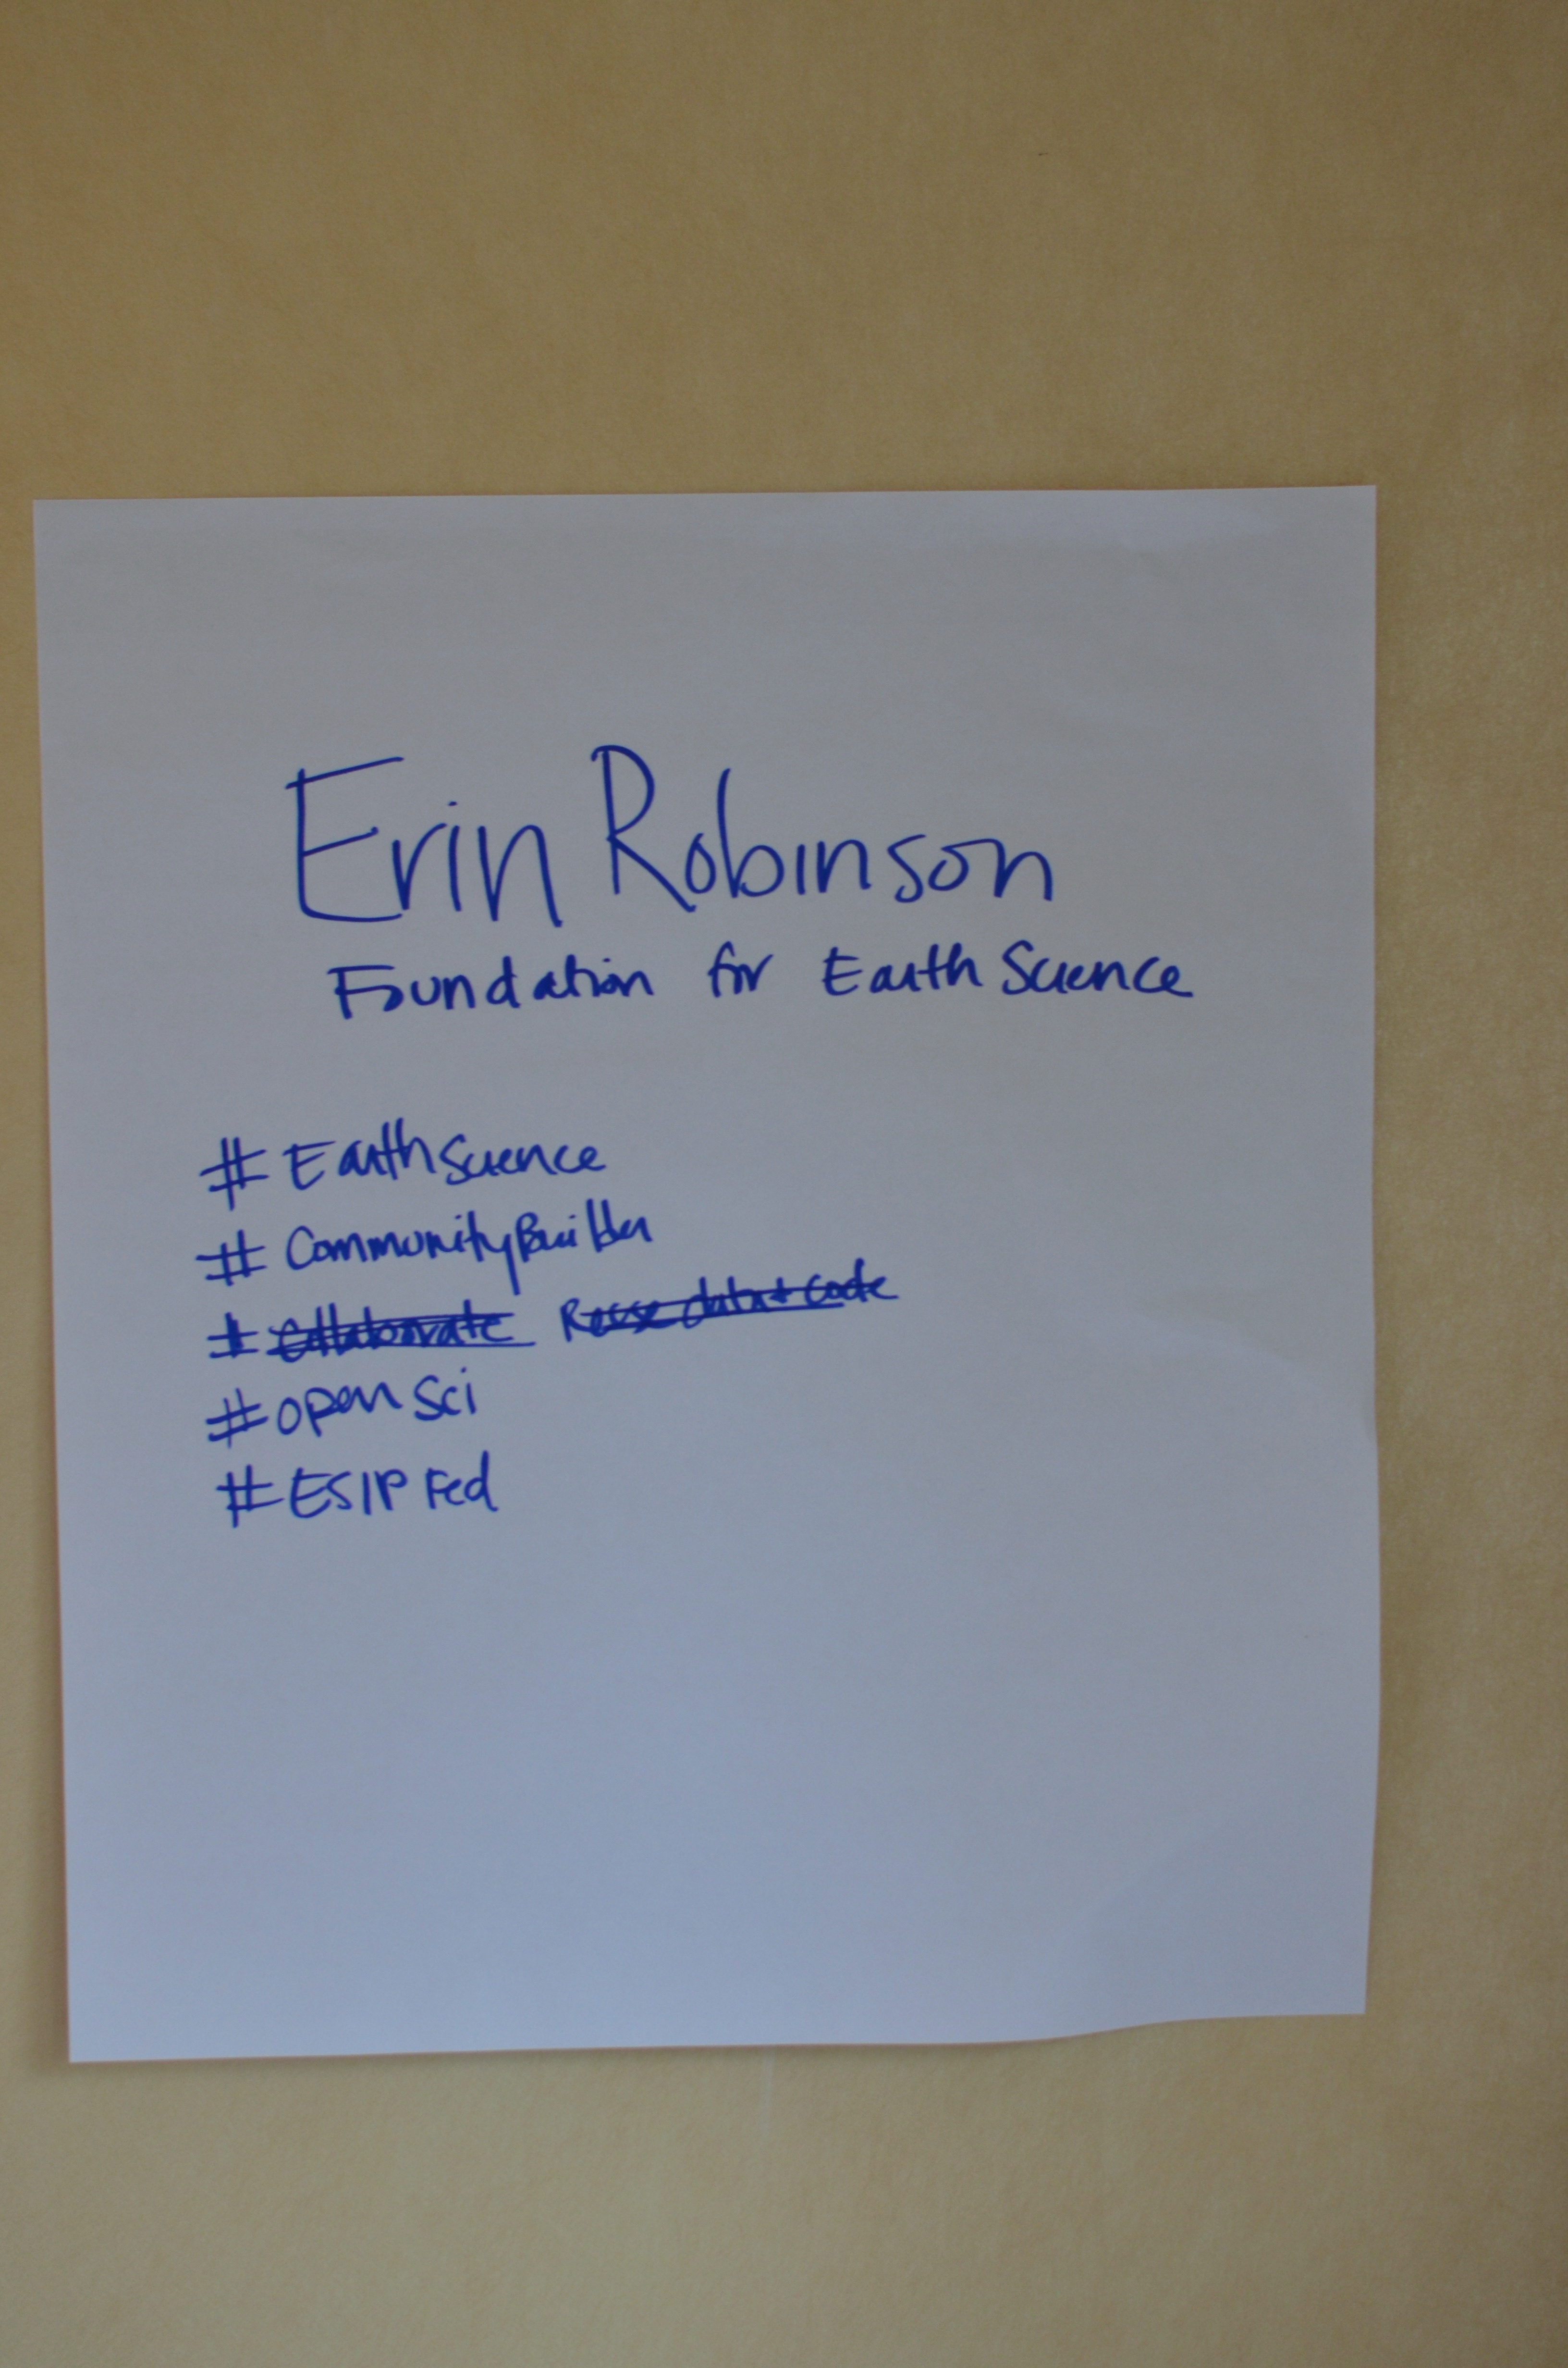 Erin Robinson
Foundation for Earth Science
# EarthScience
# CommunityBuilder
# Collaborate Reuse data + code
# open Sci
# ESIP Fed